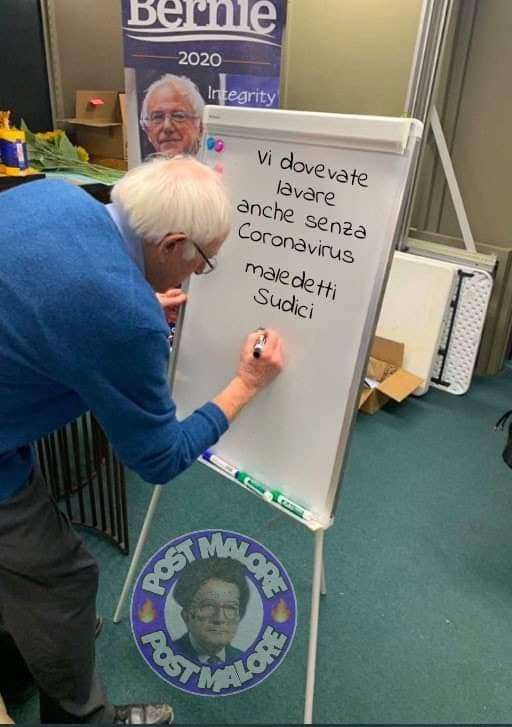 Bernie
2020
Integrity
Vi dovevate
lavare
anche senza
Coronavirus
maledetti
Sudici
POST MALORE
POST MALORE